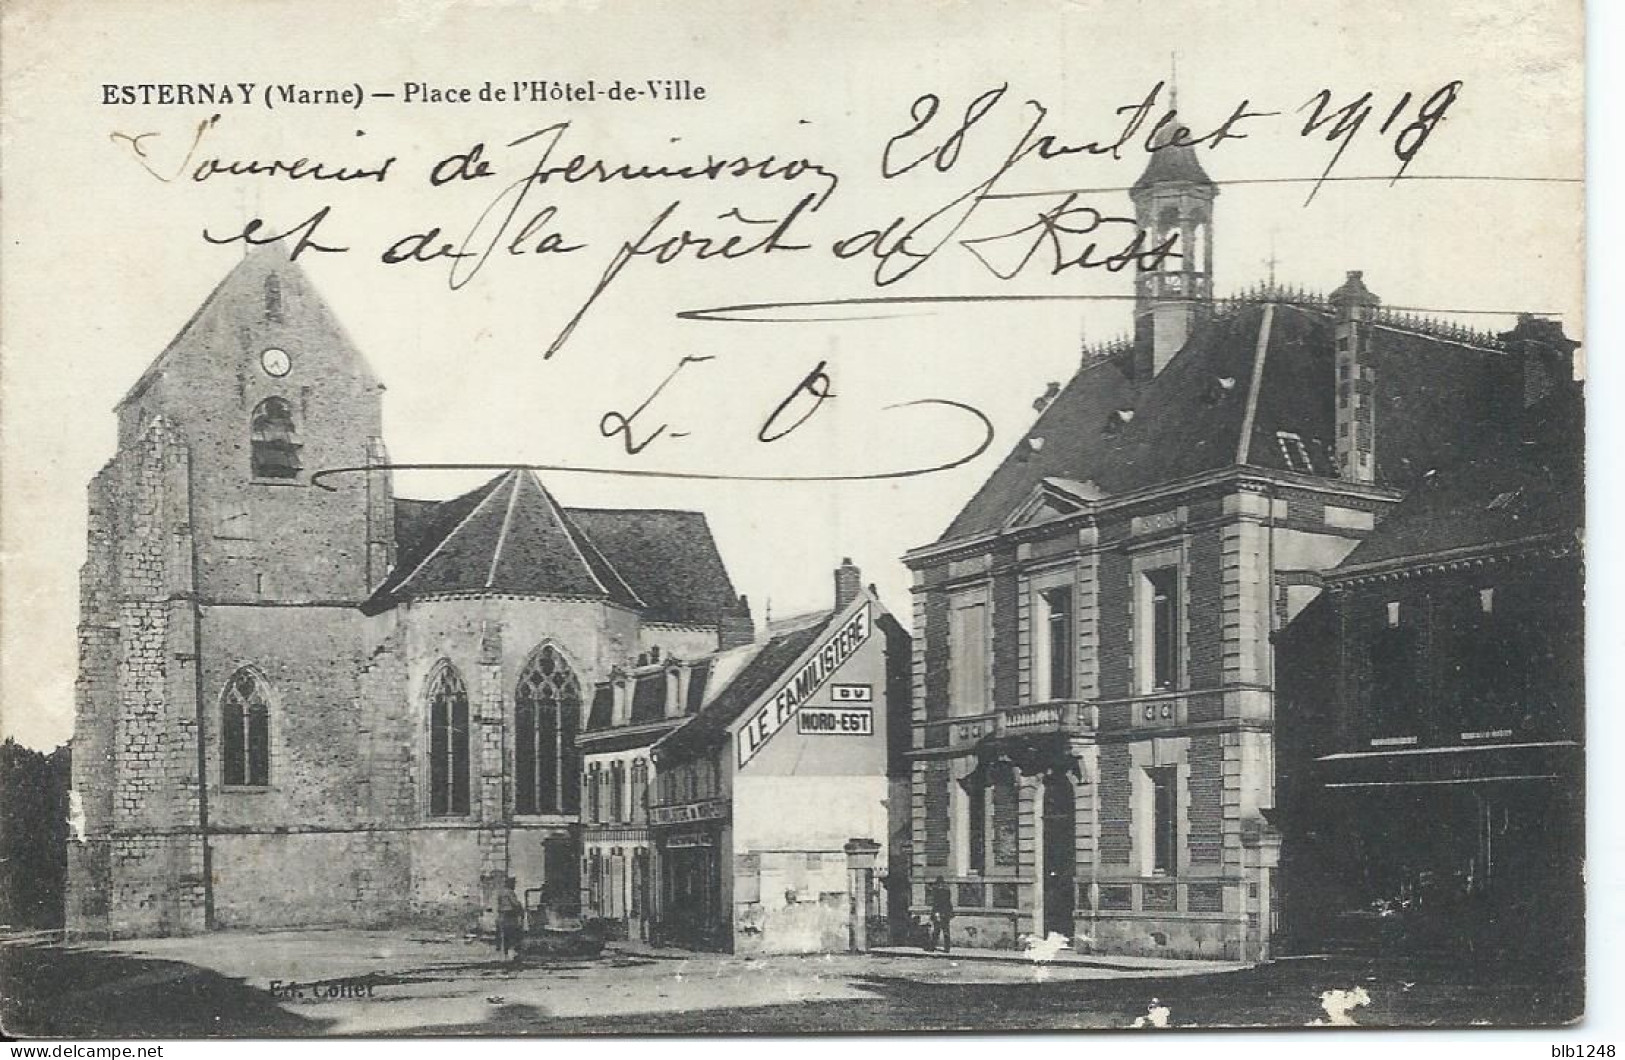 ESTERNAY (Marne) — Place de l'Hôtel-de-Ville
Souvenir de permission 28 Juillet 1919
et de la forêt de Ress
L. O
LE FAMILISTERE
DU
NORD-EST
Ed. Collet
blb1248